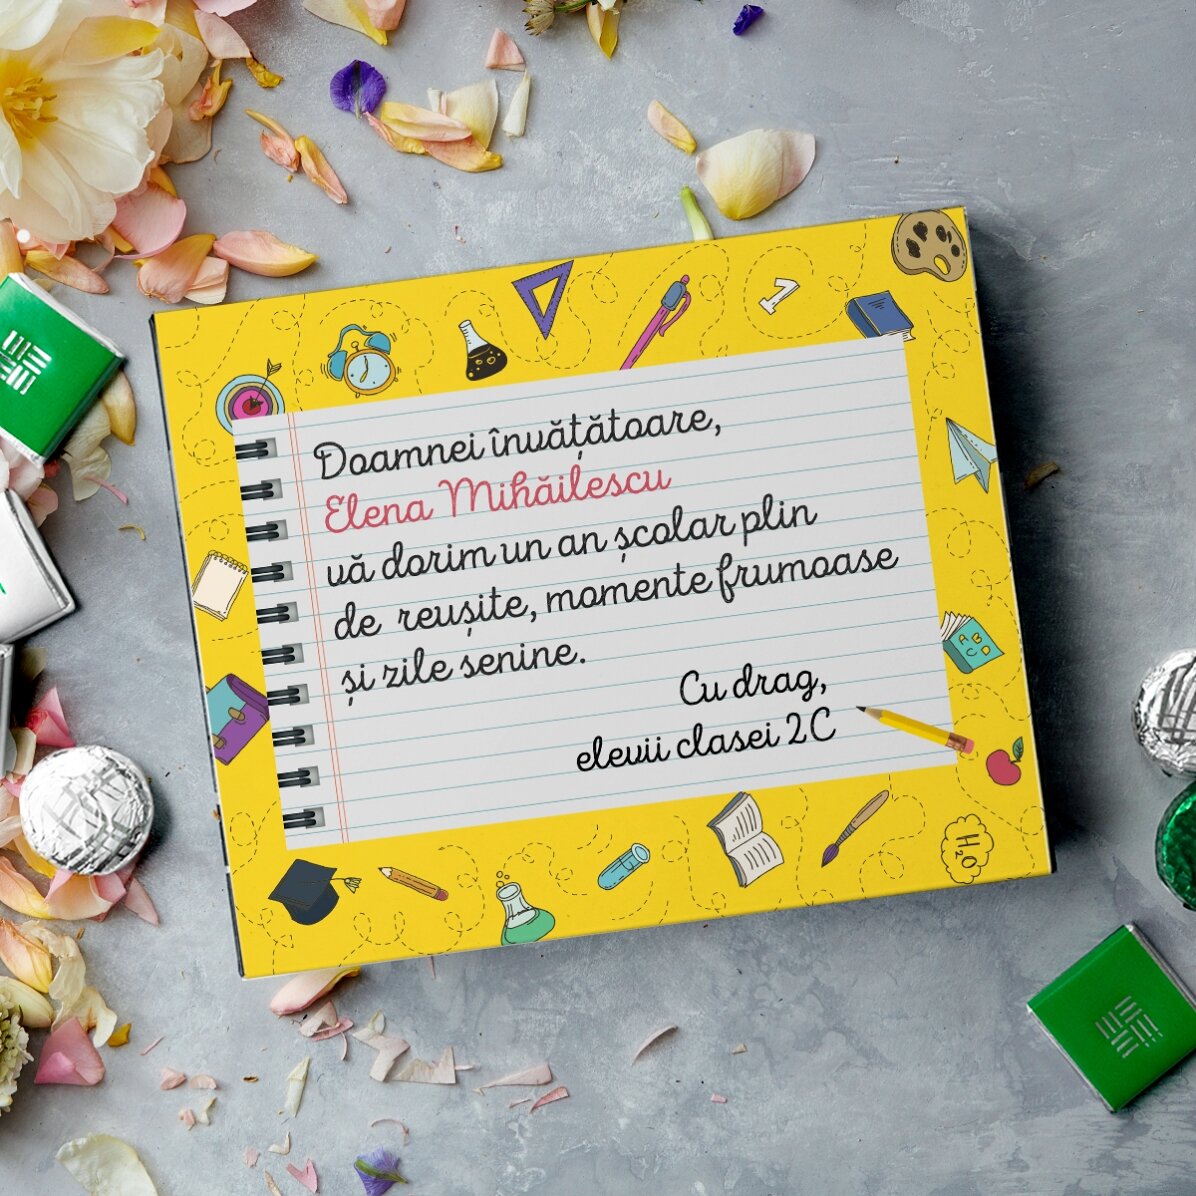 Doamnei învățătoare,
Elena Mihăilescu
vă dorim un an școlar plin
de reușite, momente frumoase
și zile senine.
Cu drag,
elevii clasei 2C
1
A B
C D
H₂O